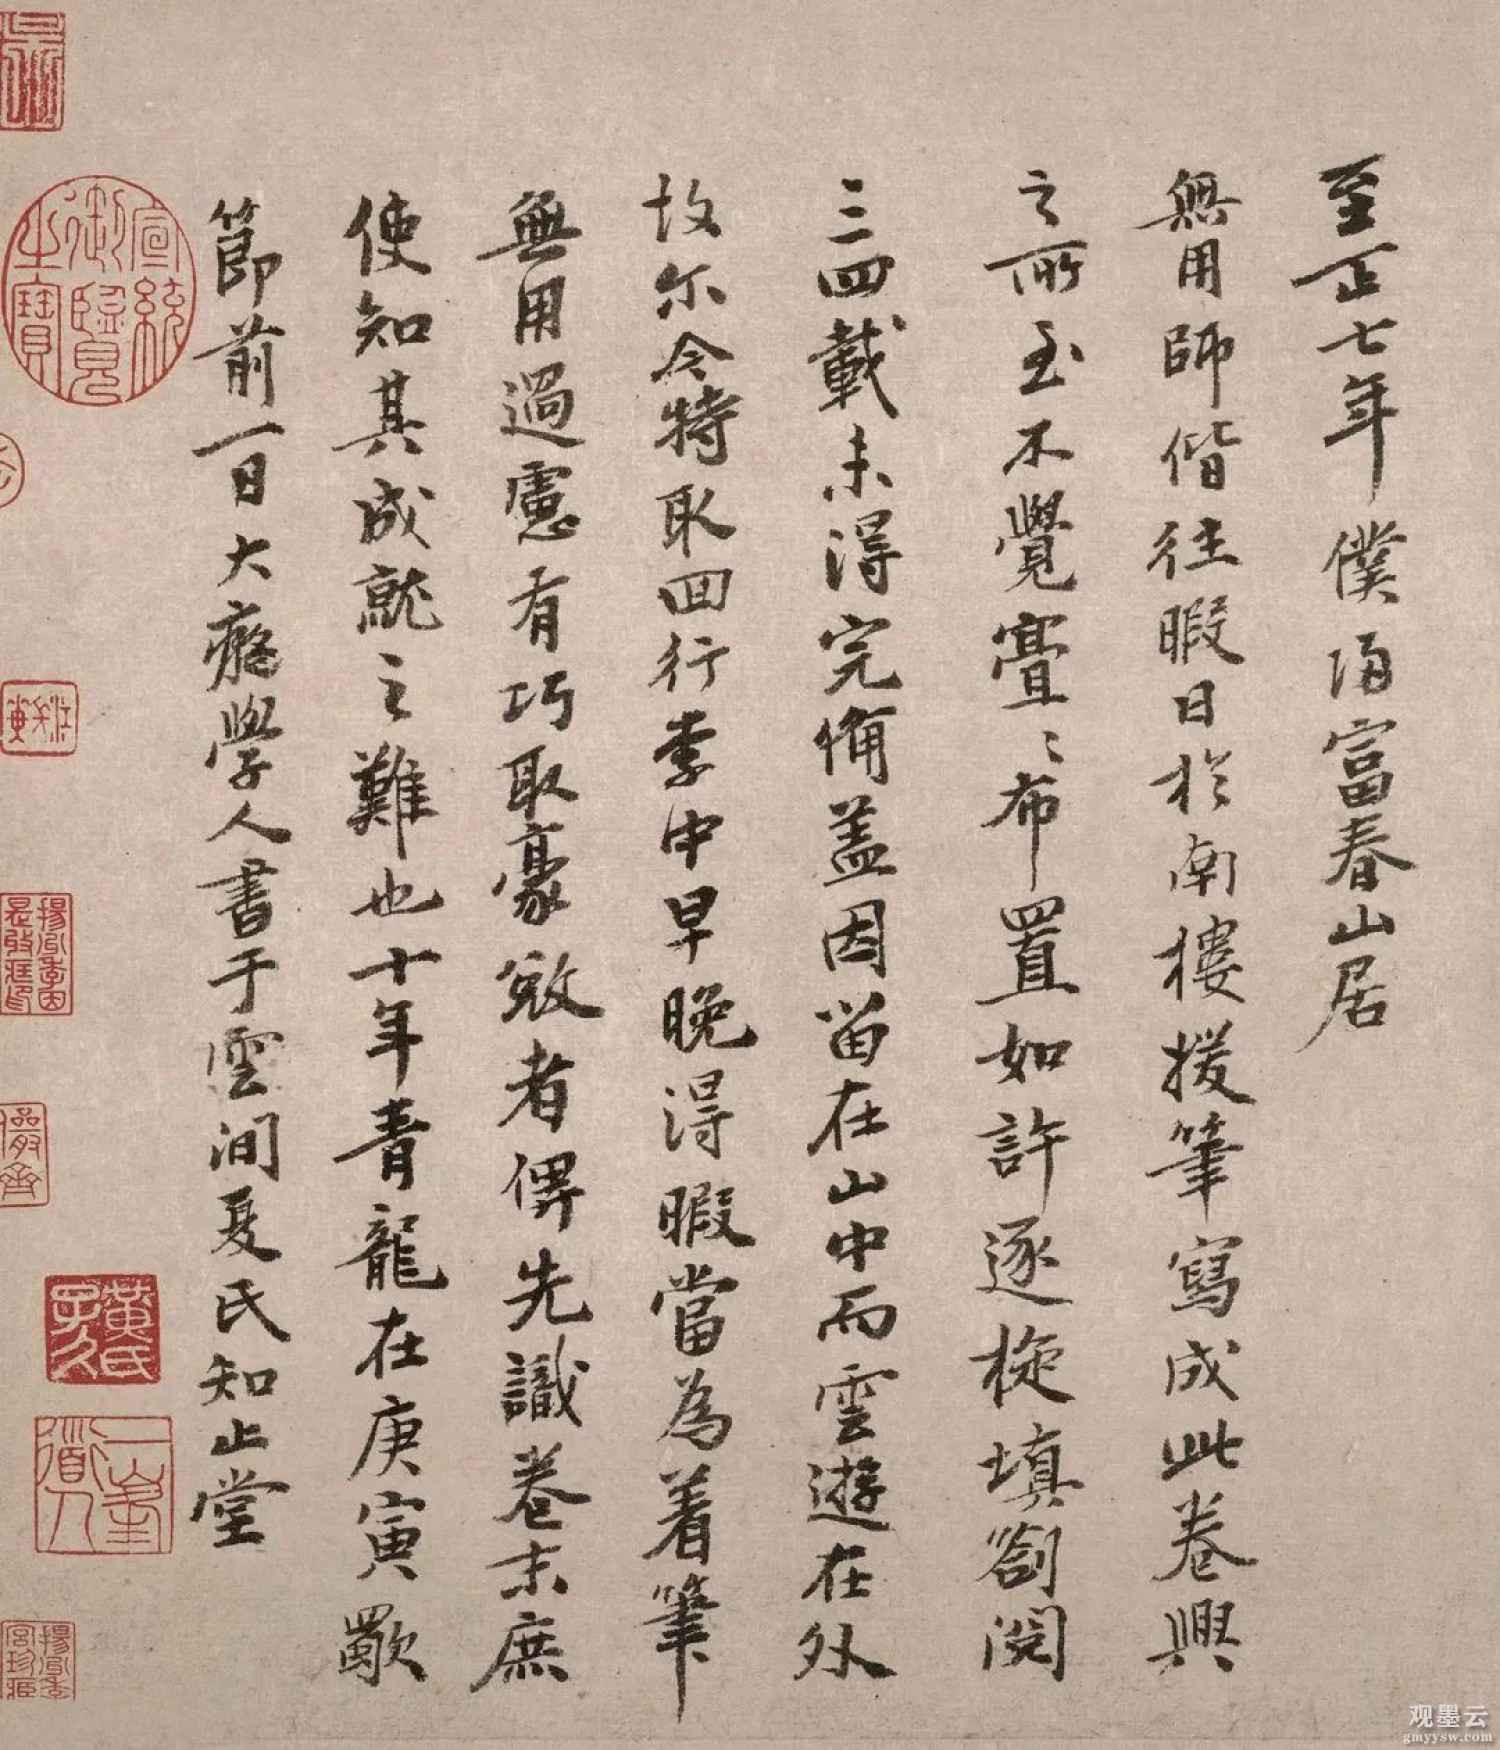 至正七年僕歸富春山居
無用師偕往暇日於南樓援筆寫成此卷興
之所至不覺亹〻布置如許逐旋填劄閱
三四載未得完備盖因留在山中而雲遊在外
故尔今特取回行李中早晚得暇當為着筆
無用過慮有巧取豪敚者俾先識卷末庶
使知其成就之難也十年青龍在庚寅歜
節前一日大癡學人書于雲間夏氏知止堂
宣統御覽之寶
黃氏子久
一峯道人
观墨云
gmyysw.com